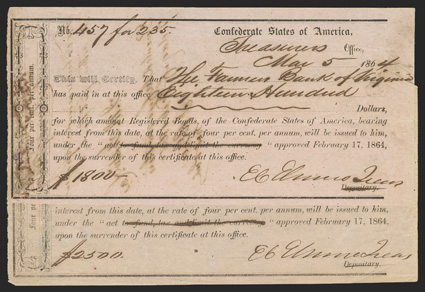 No. 457 for 235.
Confederate States of America,
Treasurers Office,
May 5 1864
This will Certify, That The Farmers Bank of Virginia
has paid in at this office Eighteen Hundred
Dollars,
for which amount Registered Bonds, of the Confederate States of America, bearing
interest from this date, at the rate of four per cent. per annum, will be issued to him,
under the "act to fund, tax and limit the currency" approved February 17, 1864,
upon the surrender of this certificate at this office.
$1800
Treas
Depositary.
interest from this date, at the rate of four per cent. per annum, will be issued to him,
under the "act to fund, tax and limit the currency" approved February 17, 1864,
upon the surrender of this certificate at this office.
$2500.
Treas
Depositary.